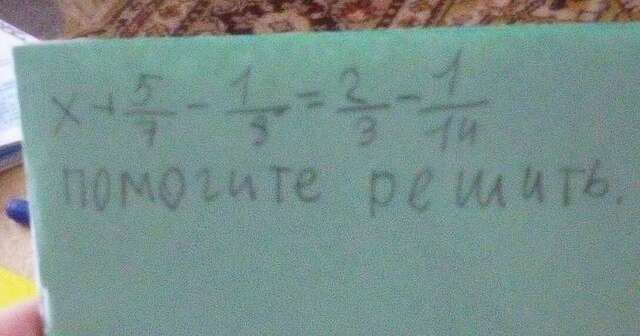 x + 5/7 - 1/3 = 2/3 - 1/14
помогите решить.